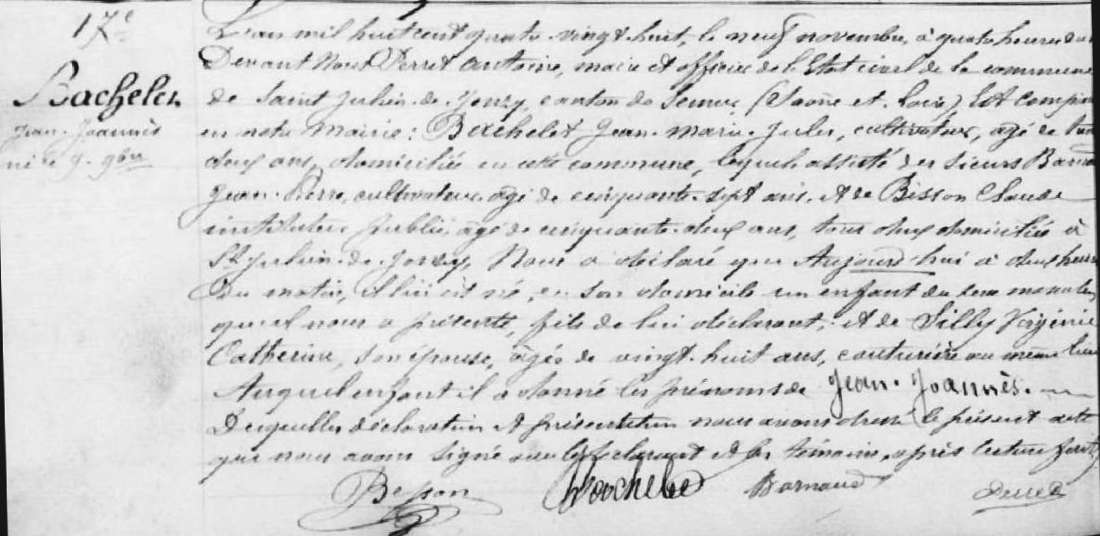 17e
Bachelet
Jean-Joannès
né le 9 9bre
L'an mil huit cent quatre-vingt-huit, le neuf novembre, à quatre heures du
Devant Nous Perret Antoine, maire et officier de l'Etat civil de la commune
de Saint Julien-de-Jonzy, canton de Semur (Saône-et-Loire) Est comparu
en notre Mairie: Bachelet Jean-Marie-Jules, cultivateur, âgé de
deux ans, domicilié en cette commune, lequel assisté des sieurs Barnaud
Jean-Pierre, cultivateur, âgé de cinquante-sept ans, et de Besson Claude
instituteur public, âgé de cinquante-deux ans, tous deux domiciliés à
St Julien-de-Jonzy, Nous a déclaré que Aujourd'hui à deux heures
du matin, il lui est né, en son domicile un enfant du sexe masculin
qu'il nous a présenté, fils de lui déclarant, et de Silly Virginie
Catherine, son épouse, âgée de vingt-huit ans, couturière au même lieu
Auquel enfant il a donné les prénoms de Jean-Joannès.
Desquelles déclaration et présentation nous avons dressé le présent acte
que nous avons signé avec le déclarant et les témoins, après lecture faite
Besson Bachelet Barnaud Perret